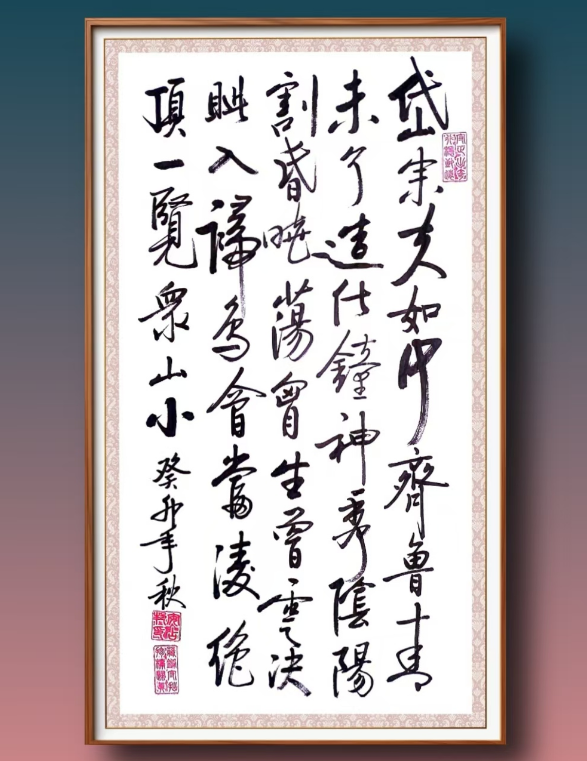 岱宗夫如何齊魯青
未了造化鐘神秀陰陽
割昏曉蕩胷生曾雲決
眦入歸鳥會當淩絕
頂一覽衆山小
癸卯年秋